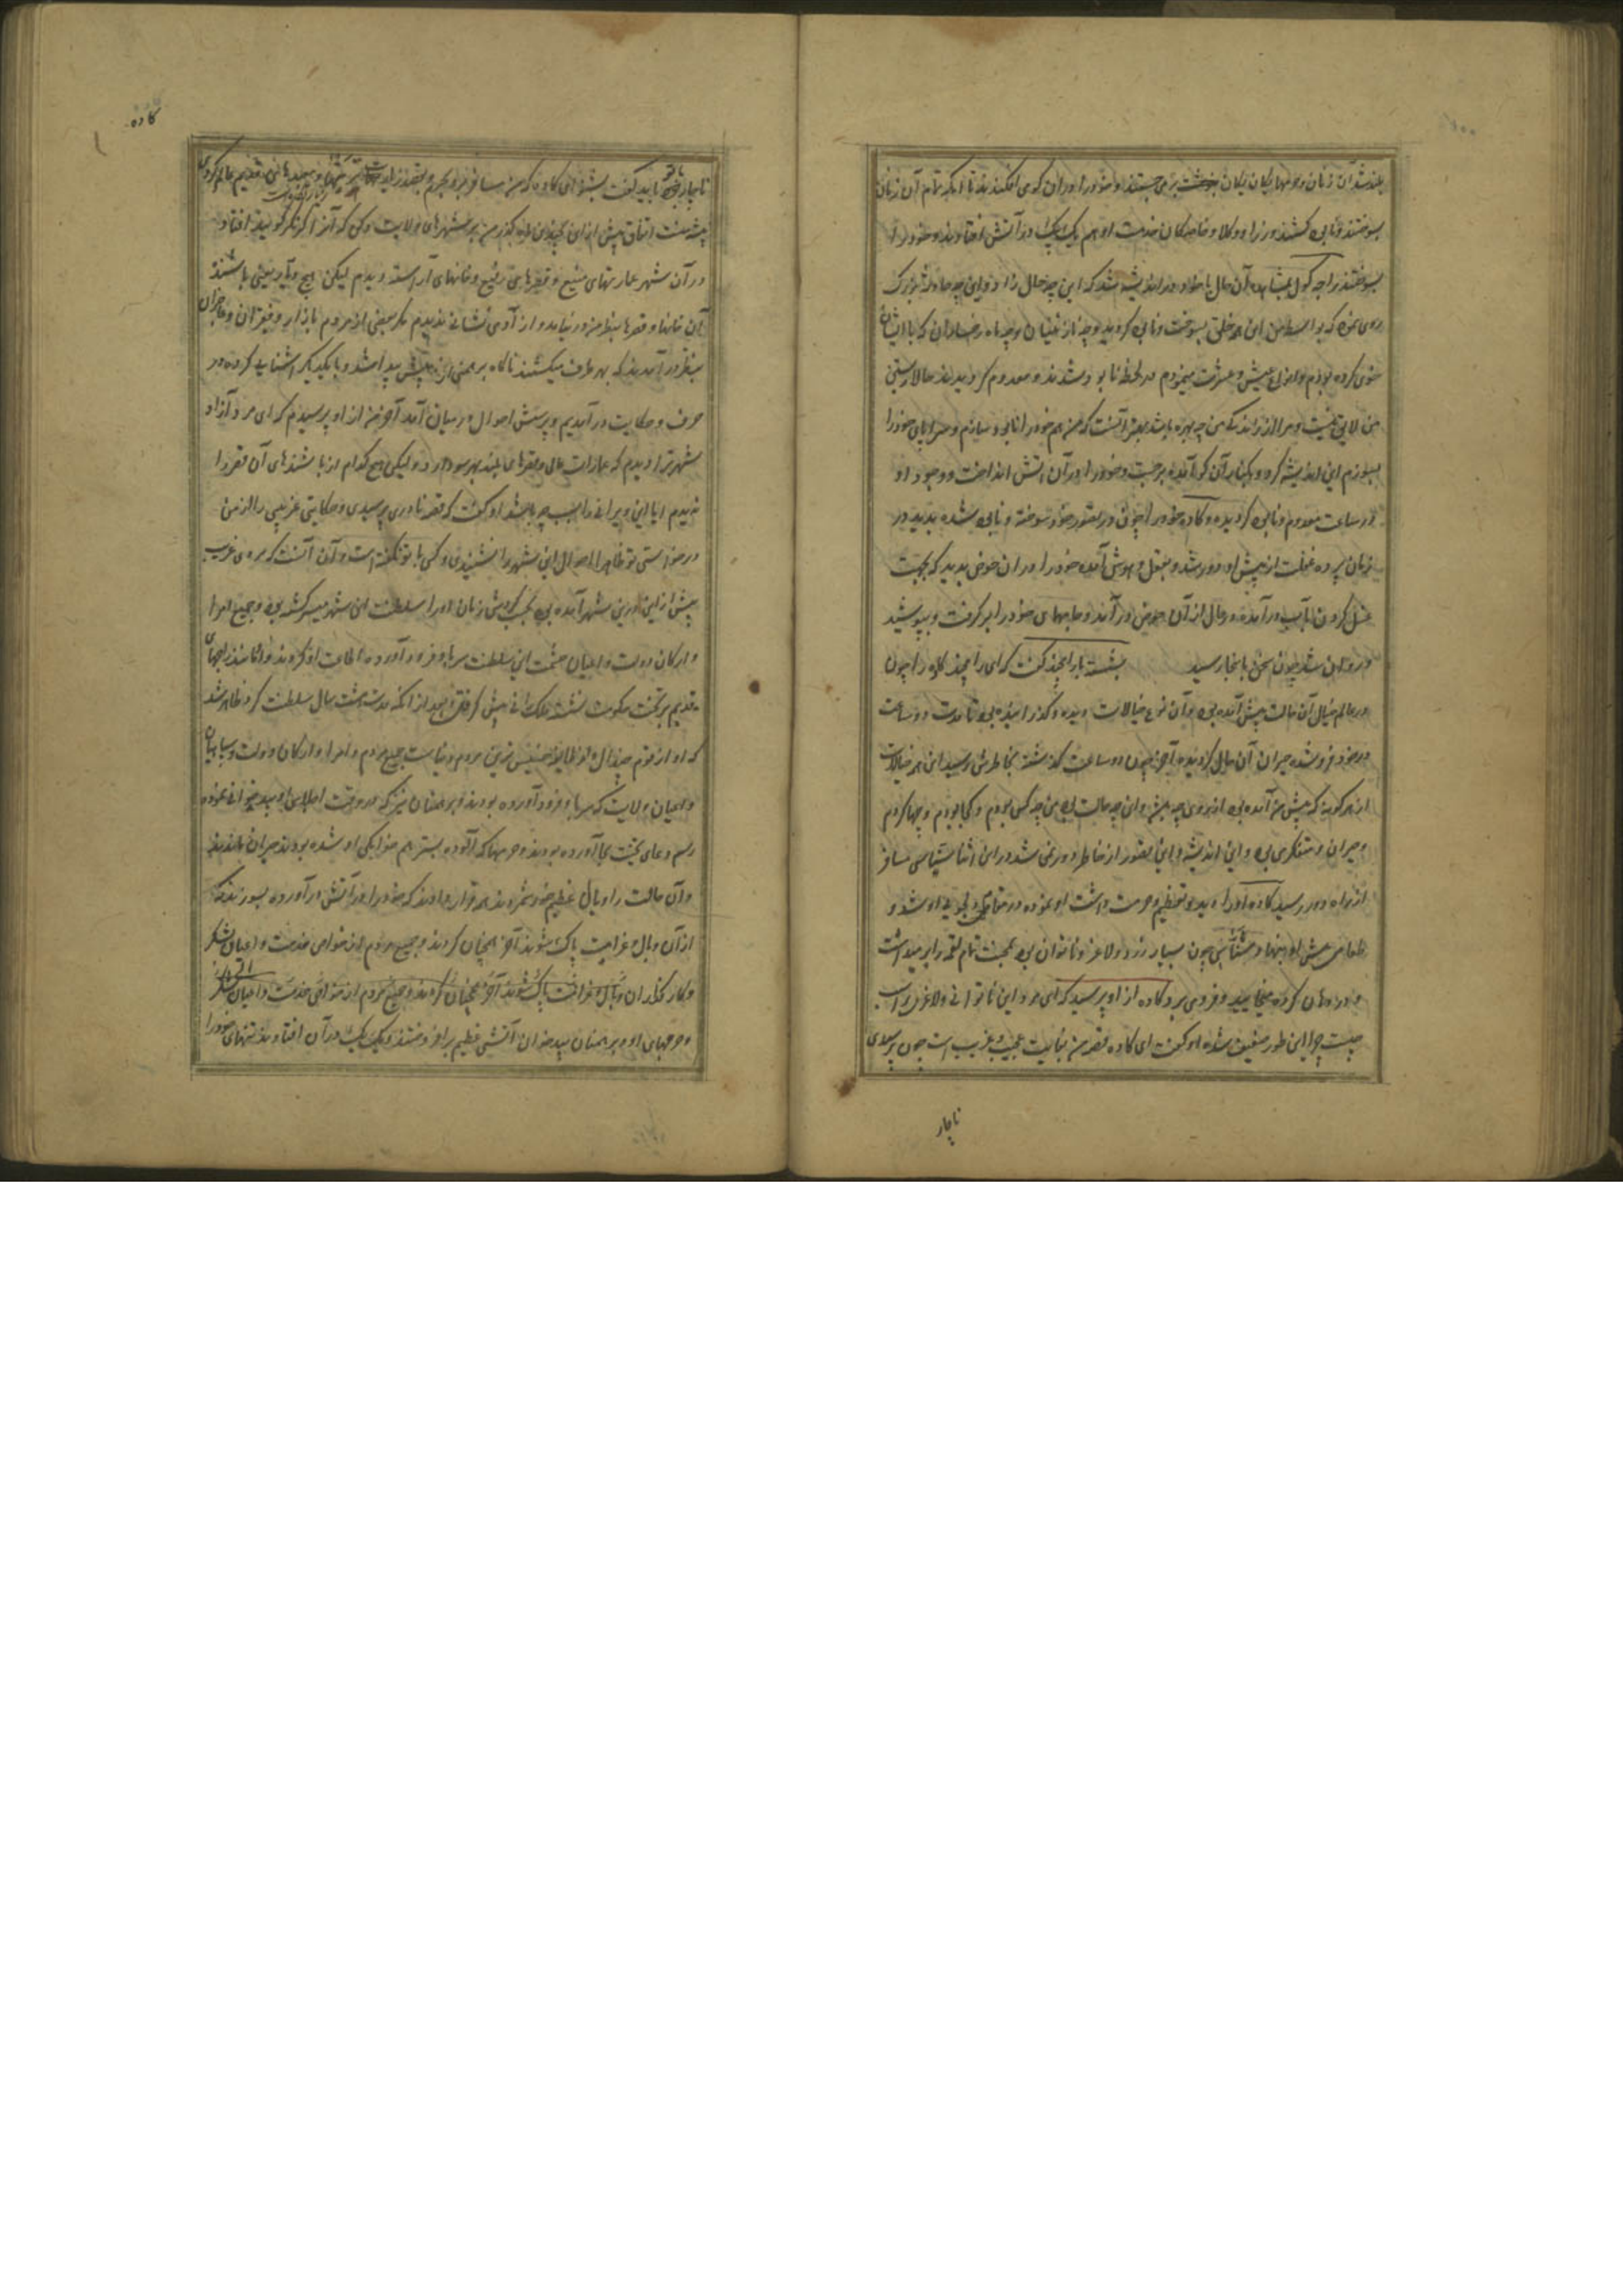 بلند شد آن زنان و حرمها یکان یکان برمی جستند و خود را در آن کوی افکندند تا آنکه تمام آن زنان
بسوختند و فانی گشتند وزرا و وکلا و خاصکان خدمت او هم یک یک در آتش افتادند و خود را
بسوختند راجه کول بمشاهده آن حال با خود در اندیشه شد که این چه حال زاد و این چه حادثه بزرک
روی نمود که بواسطه من این همه خلق بسوخت و فانی گردید و چه نازنینان و چه ماه رخساران که با ایشان
خوی کرده بودم و انواع عیش و عشرت مینمودم در لحظه نابود شدند و معدوم گردیدند حالا زیستن
من لایق نیست و مرا از زندگی من چه بهره باشد بهتر آنست که من هم خود را نابود سازم و سراپای خود را
بسوزم این اندیشه کرد و بکنار آن کو آمده برجست و خود را در آن آتش انداخت و وجود او
در ساعت معدوم و فانی گردیده و کاده خود را چون در تصور خود سوخته و فانی شده بدید در
زمان پرده غفلت از پیش او دور شد و بعقل و هوش آمده خود را در آن حوض بدید که بجهت
غسل کردن بآب درآمده در حال از آن حوض در آمد و جامهای خود را بر گرفت و بپوشید
و روان شد چون سخن باینجا رسید بشست با رامچند گفت که ای رامچند کاده را چون
در عالم خیال آن حالت پیش آمده بود و آن نوع خیالات دیده و گذرانیده بود تا مدت دو ساعت
در خود فرو شده حیران آن حال گردیده آخر چون دو ساعت گذشته بخاطرش رسید این همه خیالات
از هر گونه که پیش من آمده بود از روی چه باشد و این چه حالت بود من چه کس بودم و کجا بودم و چها کردم
و حیران و متفکر می بود و این اندیشه و این تصور از خاطر دور نمی شد در این اثنا سناسی مسافر
از راه دور رسید کاده او را دید و تعظیم و حرمت داشت او نموده در مقام دلجویی او شد و
طعامی پیش او بنهاد و سناسی چون بسیار زرد و لاغر و ناتوان بود بمحنت تمام لقمه را بر میداشت
و در دهان کرده میخایید و فرو می برد کاده از او پرسید که ای مرد این ناتوانی و لاغری را سبب
چیست چرا این طور ضعیف شده او گفت ای کاده قصه من بغایت عجیب و غریب است چون پرسیدی
ناچار
کاده
ناچار با تو باید گفت بشنو ای کاده که من مسافر
پیش منت اتفاق پیش از این چندین گاه گذر من بر شهرهای ولایت که آنرا گویند افتاد
در آن شهر عمارتهای منیع و قصرهای رفیع و خانهای آراسته دیدم لیکن هیچ دیار یعنی باشنده
آن خانها و قصرها بنظر من در نیامد و از آدمی نشانی ندیدم مگر بعضی از مردم بازار و فقیران و عاجزان
بنظر در آمدند که بهر طرف میگشتند ناگاه برهمنی از پیش پیدا شد و با یکدیگر آشنایی کرده در
حرف و حکایت در آمدیم و پرسش احوال در میان آمد آخر من از او پرسیدم که ای مرد آزاد
شهر ترا دیدم که عمارات عالی و قصرهای بلند بهر سو دارد و لیکن هیچ کدام از باشندهای آن قصر را
ندیدم ایا این ویرانی را سبب چه باشد او گفت که قصه نادری پرسیدی و حکایتی غریبی را از من
درخواستی تو ظاهرا احوال این شهر را نشنیدی و کسی با تو نگفته است و آن آنست که مردی غریب
پیش از این درین شهر آمده بود بحسب گردش زمان او را سلطنت این شهر میسر گشته بود و جمیع امرا
و ارکان دولت و اعیان حشمت این سلطنت سر بدو فرود آورده اطاعت او کردند و او مانند راجهای
قدیم بر تخت حکومت نشسته ملک رانی پیش گرفت و بعد از آنکه مدت هشت سال سلطنت کرد ظاهر شد
که او از قوم چندال و از طایفه خسیس ترین مردم دنیاست جمیع مردم و امرا و ارکان دولت و سپاهیان
و اعیان ولایت که سر بدو فرود آورده بودند و برهمنان نیز که در وقت اجلاس او بید خوانی نموده
رسم دعای تخت بجا آورده بودند و حرمها که آلوده بستر هم خوابگی او شده بودند حیران ماندند
و آن حالت را وبال عظیم خود شمردند همه قرار دادند که خود را در آتش در آورده بسوزند تا
از آن وبال و غرامت پاک شوند آخر همچنان کردند و جمیع مردم از خواص خدمت و اعیان لشکر
و کار گذاران
و حرمهای او و برهمنان بید خوان آتشی عظیم بر افروختند و یک یک در آن افتادند تنهای خود را